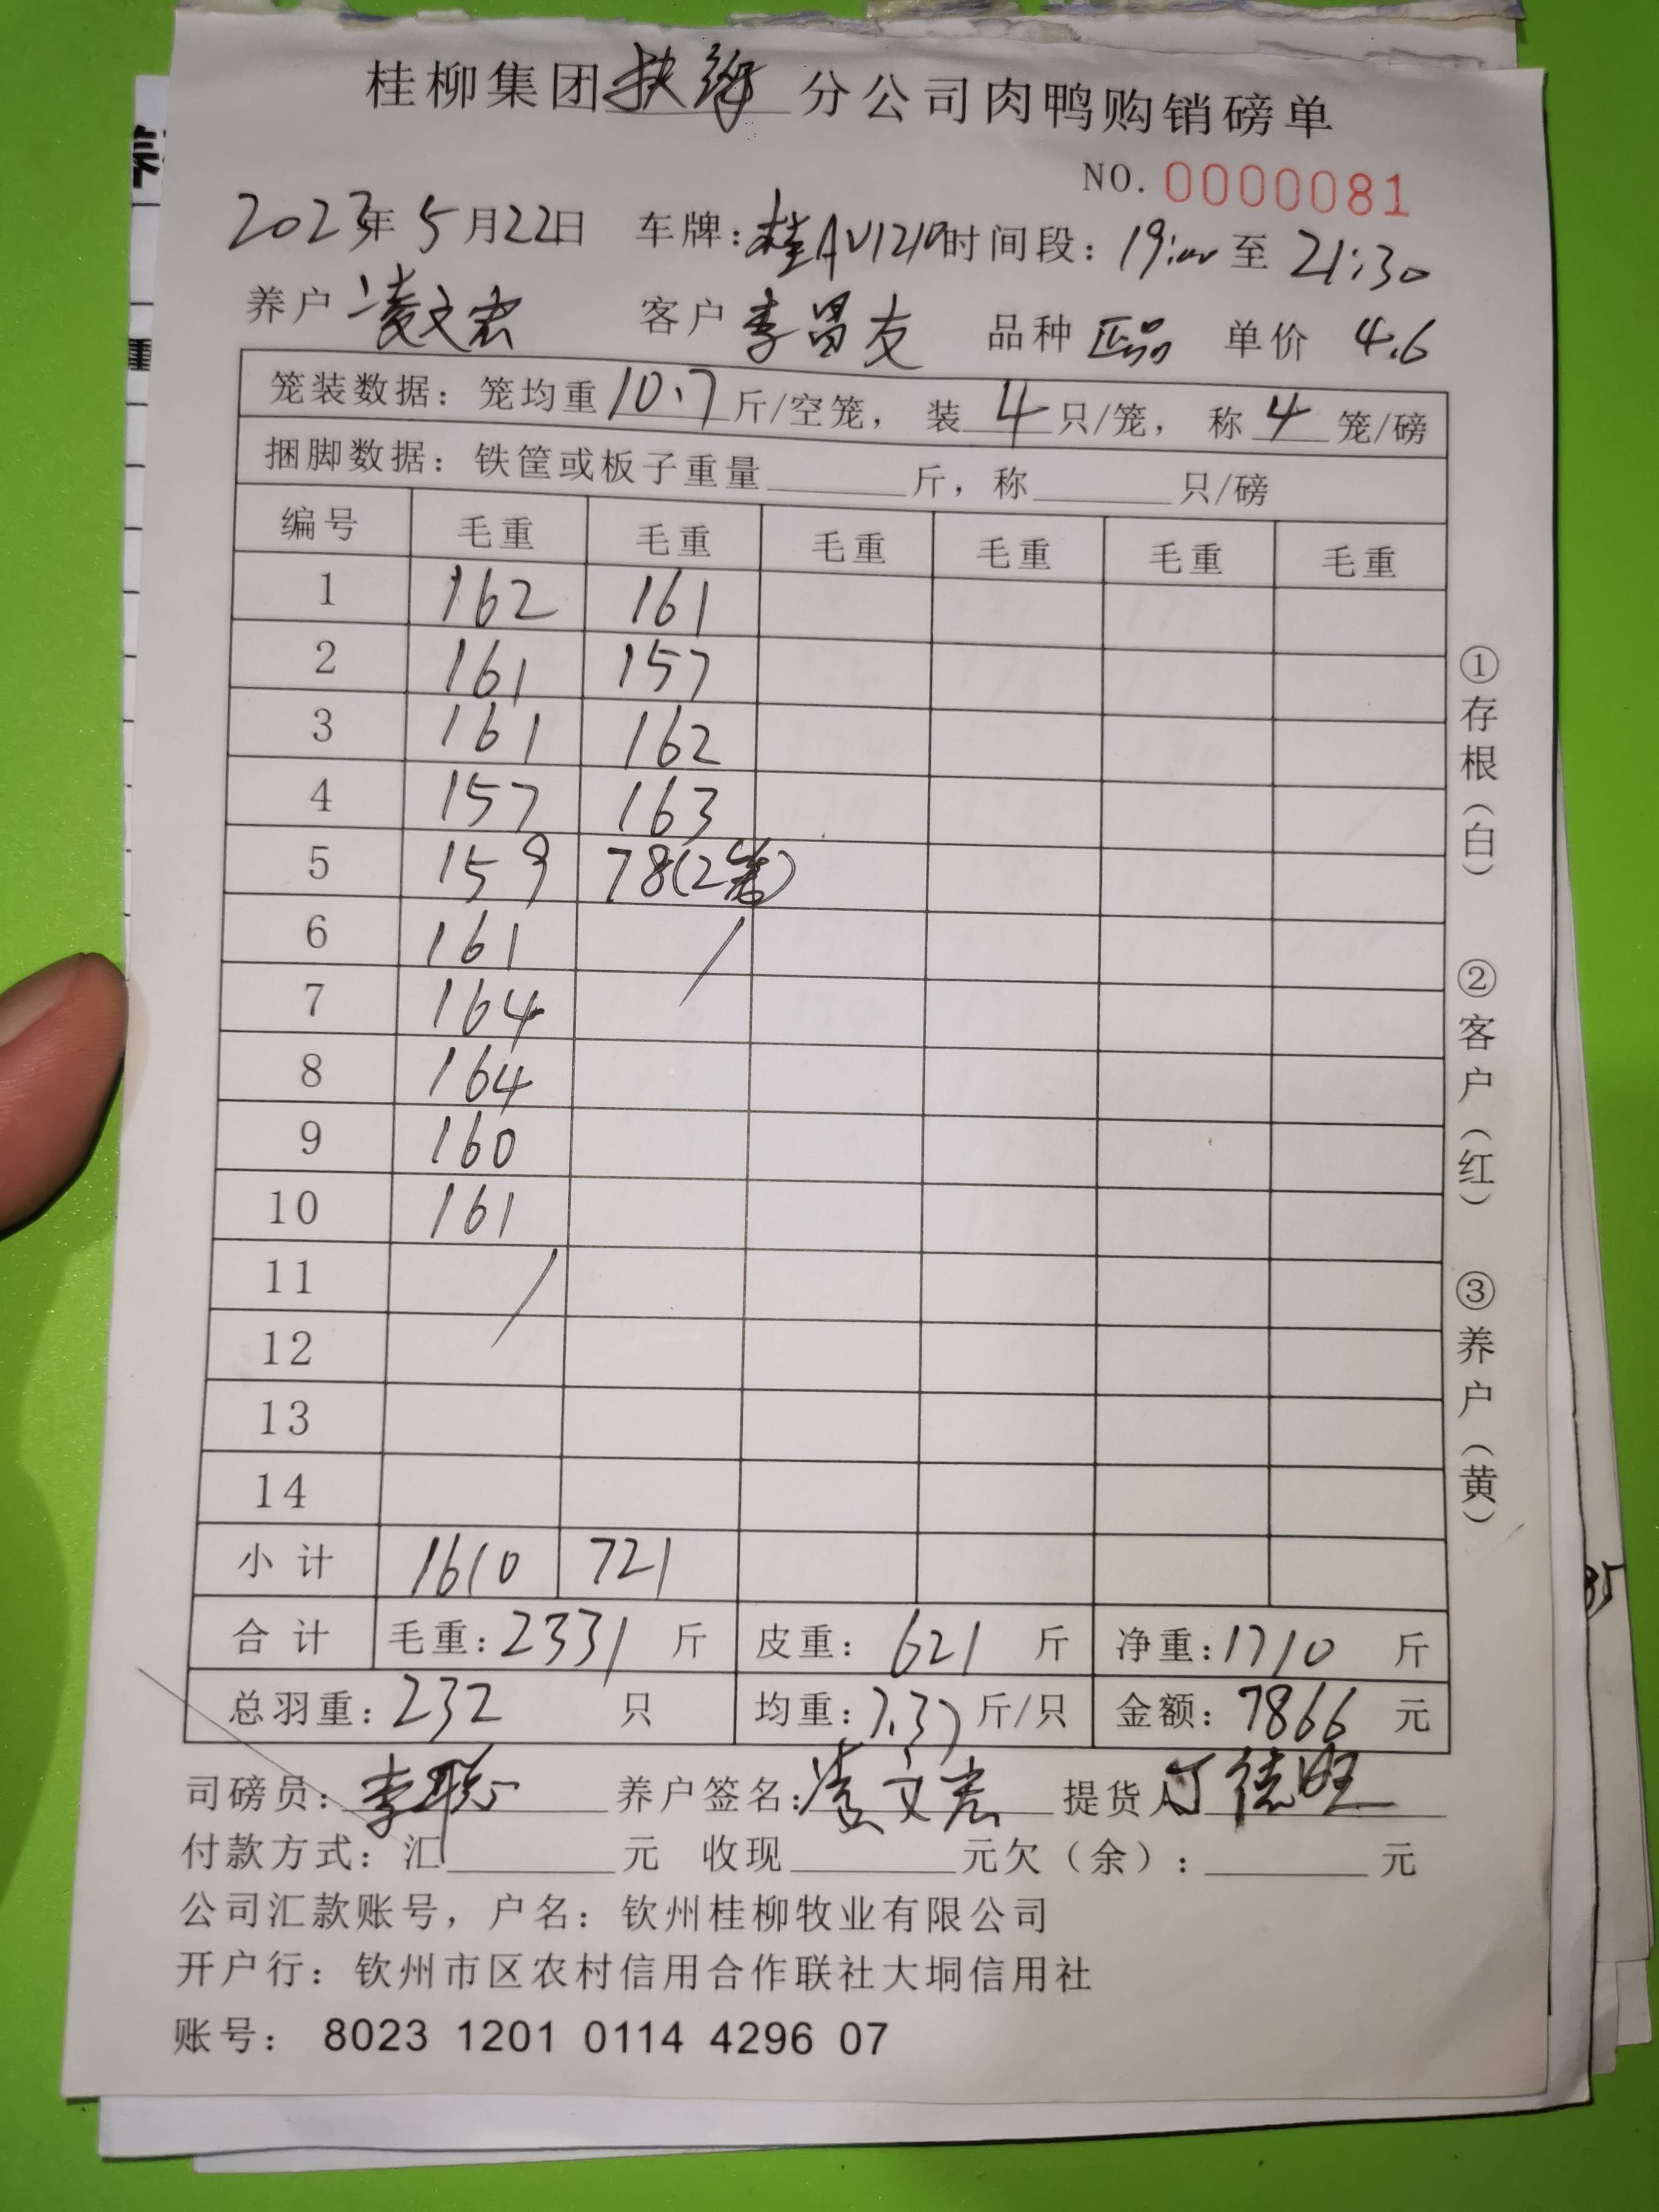 桂柳集团扶绥分公司肉鸭购销磅单
NO. 0000081
2023年 5月22日 车牌：桂AV1210 时间段：19:00 至 21:30
养户 凌文宏 客户 李昌友 品种 正品 单价 4.6
笼装数据：笼均重10.7斤/空笼，装4只/笼，称4笼/磅
捆脚数据：铁筐或板子重量____斤，称____只/磅
编号 毛重 毛重 毛重 毛重 毛重 毛重
1 162 161
2 161 157
3 161 162
4 157 163
5 159 78(2笼)
6 161 /
7 164
8 164
9 160
10 161
11 /
12
13
14
小计 1610 721
合计 毛重：2331 斤 皮重：621 斤 净重：1710 斤
总羽重：232 只 均重：7.37斤/只 金额：7866 元
司磅员：李聪 养户签名：凌文宏 提货人 丁德旺
付款方式：汇____元 收现____元欠（余）：____元
公司汇款账号，户名：钦州桂柳牧业有限公司
开户行：钦州市区农村信用合作联社大垌信用社
账号： 8023 1201 0114 4296 07
①存根（白） ②客户（红） ③养户（黄）
养
重
35